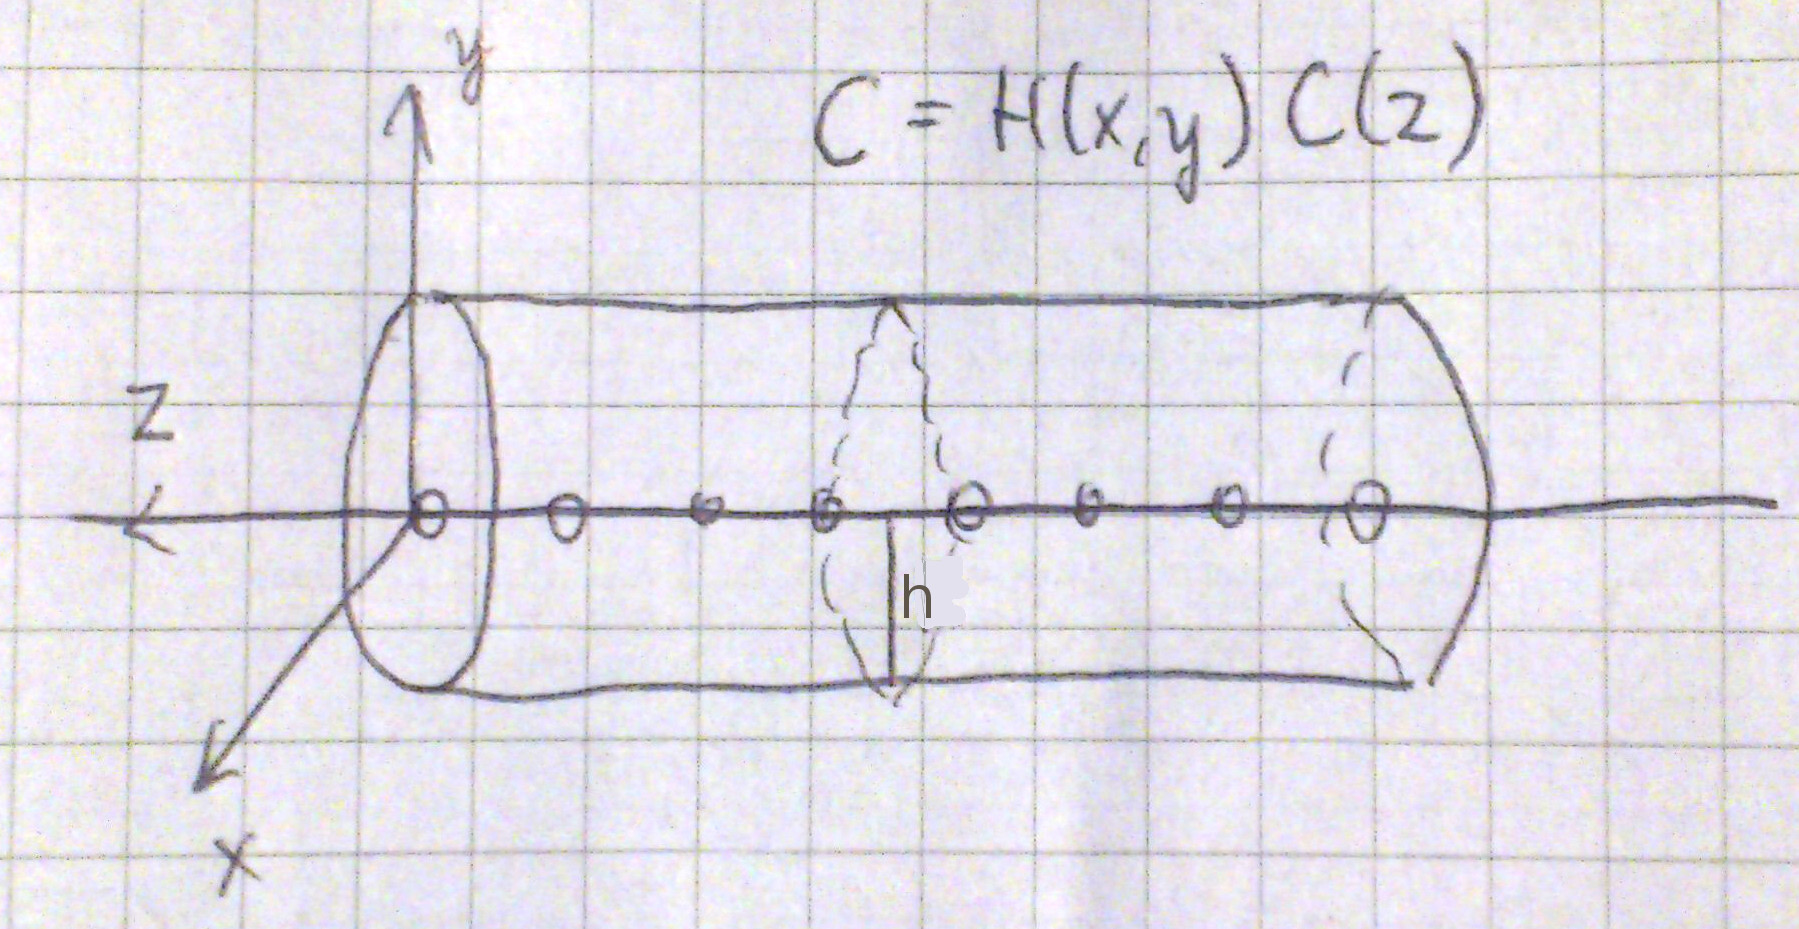 y
C = H(x,y) C(z)
z
h
x